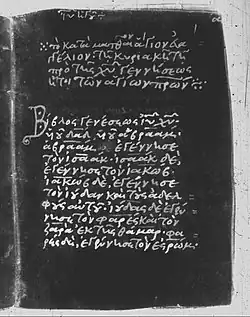 τὸ κατὰ ματθαῖ ἅγιον εὐα
γέλιον· τῇ κυριακῇ τῇ
πρὸ τῆς χυ γεννήσεως
τῶν ἁγίων πρων
Βίβλος γενέσεως ιυ χυ
υυ δαδ, υυ ἀβραάμ·
ἀβραὰμ ἐγέννησε
τὸν ἰσαάκ· ἰσαὰκ δὲ,
ἐγέννησε τὸν ἰακώβ·
ἰακὼβ δὲ, ἐγέννησε
τὸν ἰούδαν καὶ τοὺς ἀδελ
φοὺς αὐτοῦ· ἰούδας δὲ ἐγέν
νησε τὸν φαρὲς καὶ τὸν
ζαρὰ ἐκ τῆς θάμαρ· φα
ρὲς δὲ, ἐγέννησε τὸν ἐσρώμ·